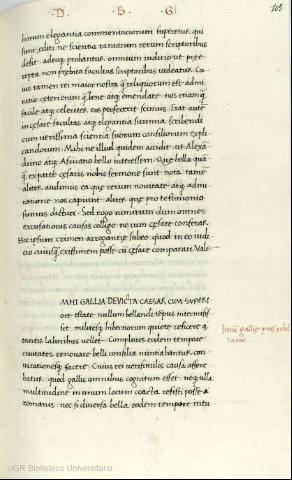 D. S. G
105
horum elegantia commentariorum superetur. qui
sunt editi ne scientia tantarum rerum scriptoribus
desit. adeoq; probantur omnium iudicio ut prae
repta non praebita facultas scriptoribus videatur. Cu
ius tamen rei maior nostra q̃ reliquorum est admi
ratio. ceteri enim q̃ bene atq; emendate. nos etiam q̃
facile atq; celeriter eos perfecerit scimus. Erat autẽ
in cesare facultas atq; elegantia summa scribendi
cum verissima scientia suorum consiliorum expli
candorum. Mihi ne illud quidem accidit ut Alexã
drino atq; Africano bello interessem. Que bella quã
q̃ ex parte cesaris nobis sermone sunt nota tamẽ
aliter audimus ea que rerum novitate atq; admi
ratione nos capiunt. aliter que pro testimonio
sumus dicturi. Sed ego nimirum dum omnes
excusationis causas colligo ne cum cesare conferar.
Hoc ipsum crimen arrogantie subeo quod in eo iudi
cio cuiusq; existimem posse cũ cesare comparari Vale
MNI GALLIA DEVICTA CAESAR CUM SUPERI
ore estate nullum bellandi tempus intermisis
set militesq; hibernorum quiete reficere a
tantis laboribus vellet. Complures eodem tempore
civitates renovare belli consilia nuntiabantur. con
iurationesq; facere. Cuius rei verisimilis causa affere
batur. quod gallis omnibus cognitum esset neq; ulla
multitudine in unum locum coacta resisti posse a
romanis. nec si diversa bella eodem tempore intu
gallie
UGR Biblioteca Universitaria